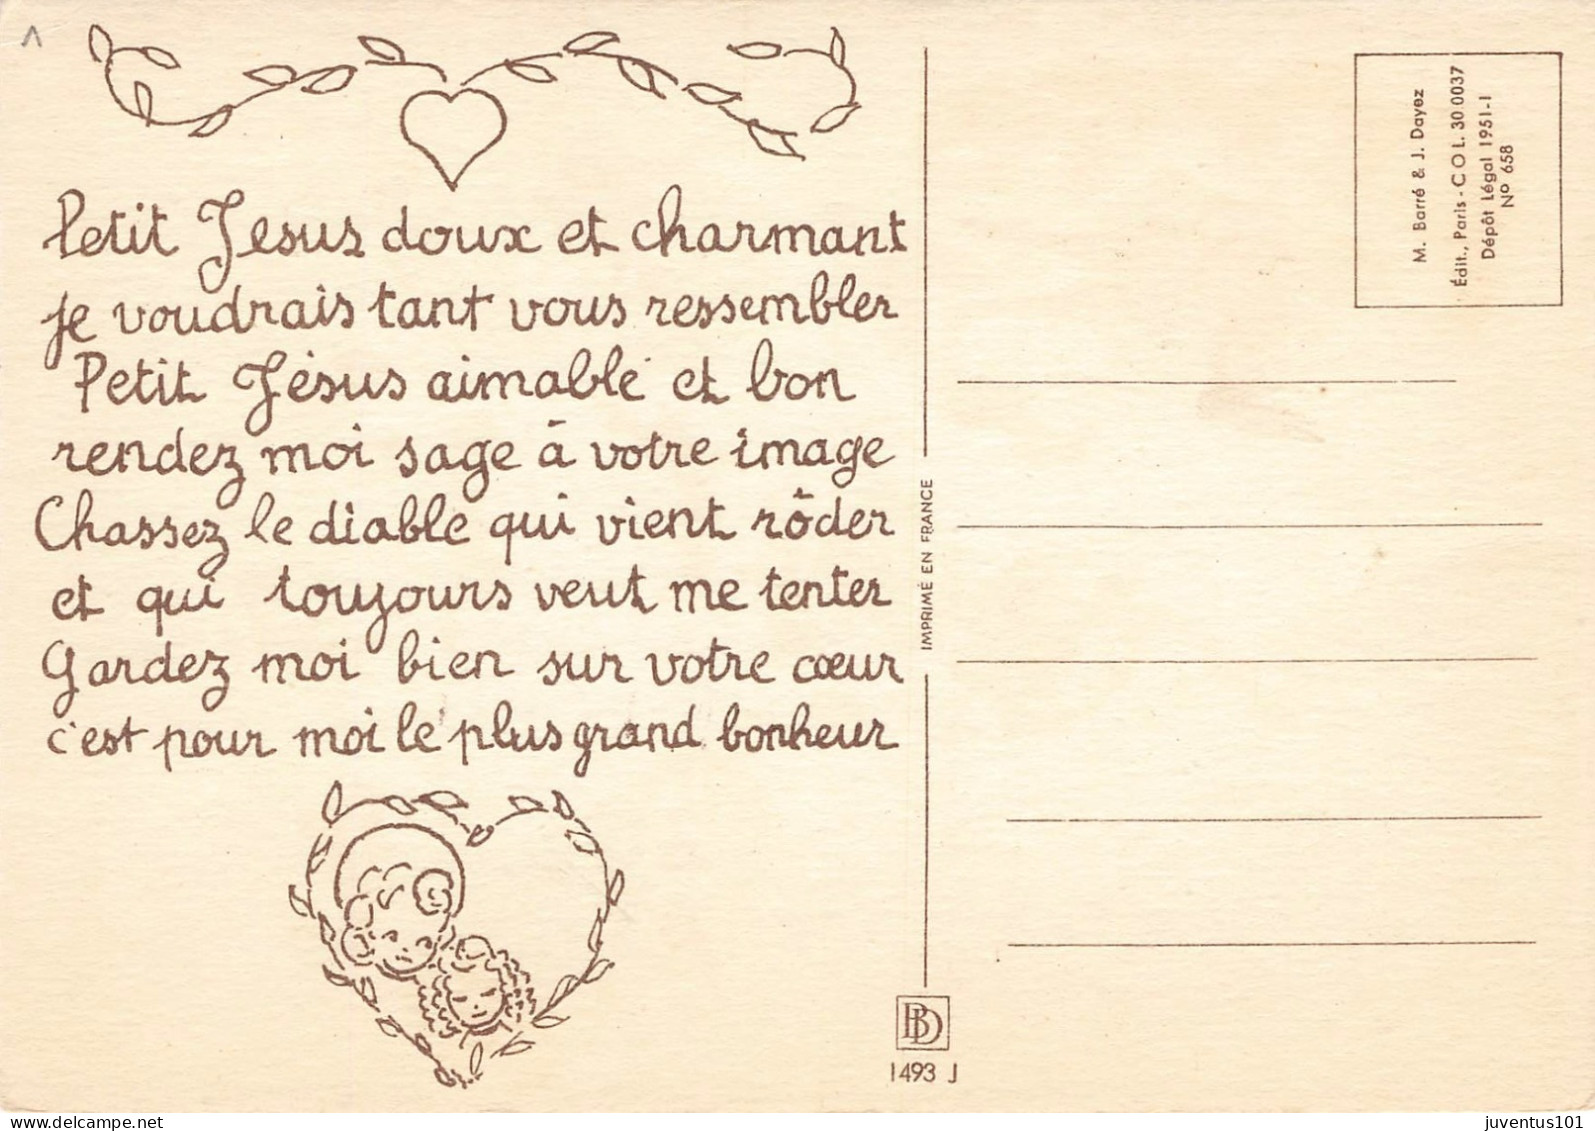 Petit Jesus doux et charmant
je voudrais tant vous ressembler
Petit Jésus aimable et bon
rendez moi sage à votre image
Chassez le diable qui vient rôder
et qui toujours veut me tenter
Gardez moi bien sur votre cœur
c'est pour moi le plus grand bonheur
IMPRIMÉ EN FRANCE
M. Barré & J. Dayez
Édit., Paris - COL. 30 0037
Dépôt Légal 1951-I
No 658
BD
1493 J
delcampe.net
juventus101